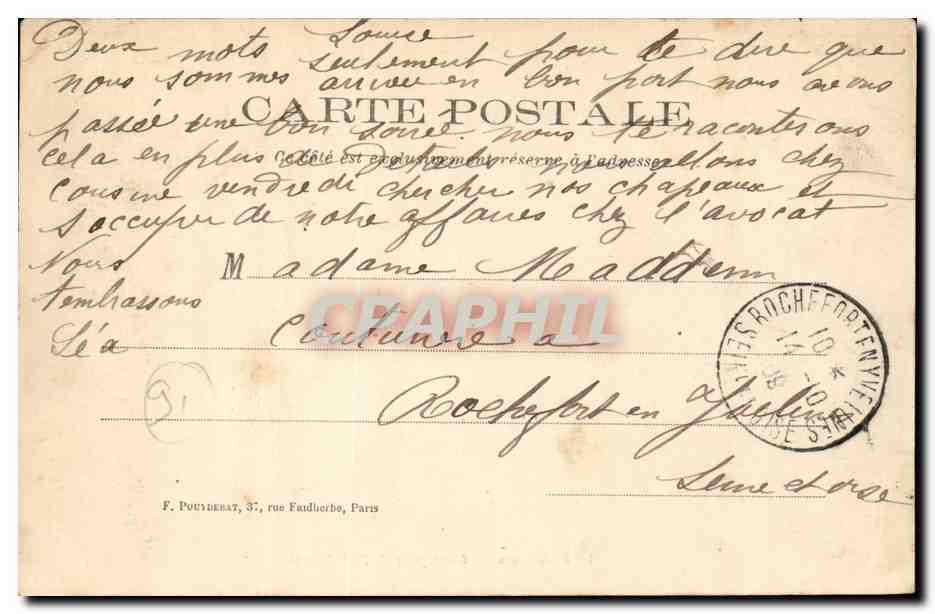 Louise
Deux mots seulement pour te dire que
nous sommes arrivée en bon port nous avons
CARTE POSTALE
passée une bon soirée. nous te raconterons
Ce côté est exclusivement réservé à l'adresse
cela en plus de details nous allons chez
cousine vendredi chercher nos chapeaux et
s'occuper de notre affaires chez l'avocat
Nous
t'embrassons
Léa
Madame
Couturière a
Rochefort en Yvelines
Seine et oise
91
CPAPHIL
ROCHEFORT EN YVELINES
SEINE ET OISE
F. POUYDEBAT, 37, rue Faidherbe, Paris